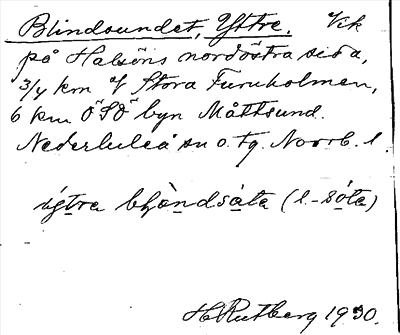 Blindsundet, Yttre. Vik
på Halsöns nordöstra sida,
3/4 km V Stora Furuholmen,
6 km OSO byn Måttsund.
Nederluleå sn o. tg. Norrb. l.
ýtra blịndsáta (l. -sóta)
H. Rutberg 1930.